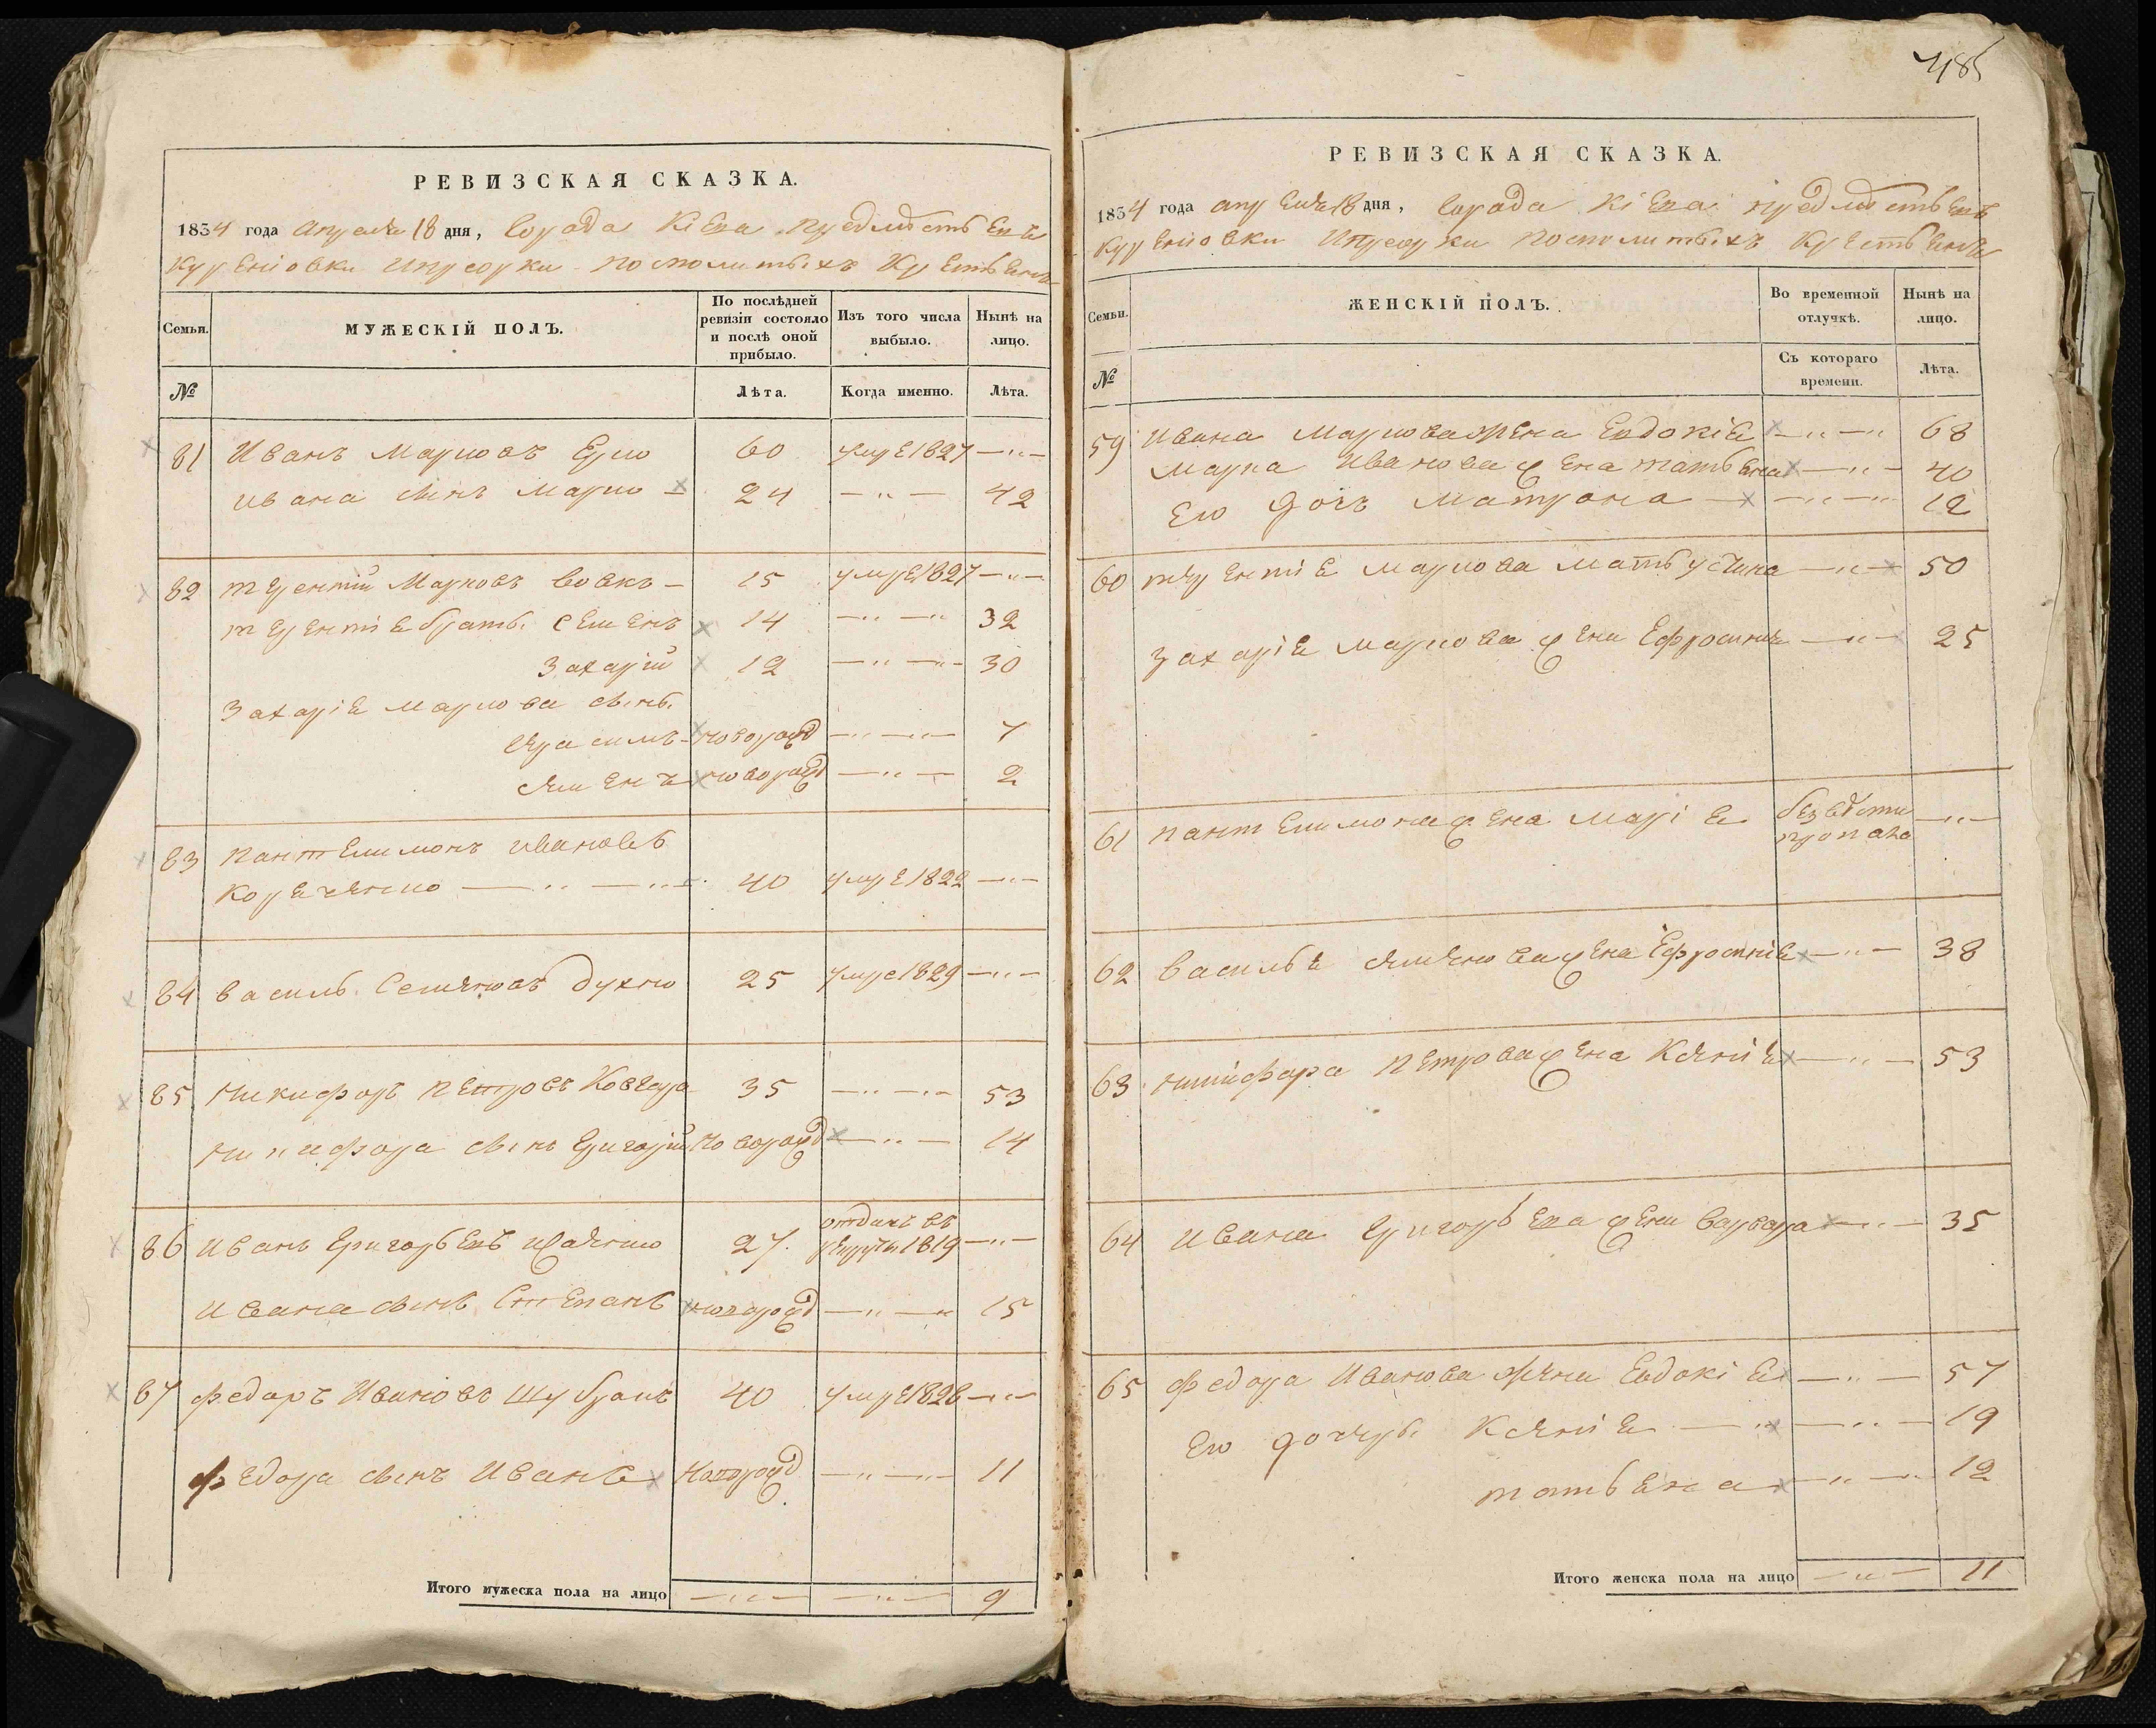 485
РЕВИЗСКАЯ СКАЗКА.
1834 года апреля 18 дня, города Кіева предмѣстьевъ
Куреніовки Ипріорки посполитыхъ Крестьянъ
Семьи.
МУЖЕСКІЙ ПОЛЪ.
По послѣдней ревизіи состояло и послѣ оной прибыло.
Изъ того числа выбыло.
Нынѣ на лицо.
№
Лѣта.
Когда именно.
Лѣта.
81 Иванъ Марковъ 60 умре 1827 —„—
Ивана сынъ Марко 24 —„— 42
82 Терентій Марковъ Вовкъ 15 умре 1827 —„—
Терентіе братъ Семенъ 14 —„—„ 32
Захарій 12 —„—„— 30
Захаріе Маркова сынъ
Герасимъ новорожд —„—„— 7
Семенъ новорожд —„— 2
83 Пантелимонъ Ивановъ
Коряченко —„—„— 40 умре 1822 —„—
84 Василь Семеновъ Духно 25 умре 1829 —„—
85 Никифоръ Петровъ Ковгаря 35 —„—„— 53
Никифора сынъ Григорій новорожд —„— 14
86 Иванъ Григорьевъ 27. отданъ въ рекруты 1819 —„—
Ивана сынъ Степанъ новорожд —„—„ 15
87 Федоръ Ивановъ Шубранъ 40 умре 1826 —„—
Федора сынъ Иванъ Новорожд —„—„— 11
Итого мужеска пола на лицо —„— —„— 9
РЕВИЗСКАЯ СКАЗКА.
1834 года апреля 18 дня, города Кіева предмѣстьевъ
Куреніовки Ипріорки посполитыхъ Крестьянъ
Семьи.
ЖЕНСКІЙ ПОЛЪ.
Во временной отлучкѣ.
Нынѣ на лицо.
№
Съ котораго времени.
Лѣта.
59 Ивана Маркова жена Евдокіе —„—„ 68
Марка Иванова жена Татьяна —„— 40
Его дочь Матрона —„—„ 12
60 Терентіе Маркова мать Устина —„— 50
Захаріе Маркова жена Ефросиніе —„— 25
61 Пантелимона жена Маріе безвѣсти пропала —„—
62 Василье Семенова жена Ефросиніе —„— 38
63 Никифора Петрова жена Ксеніе —„— 53
64 Ивана Григорьева жена Варвара —„— 35
65 Федора Иванова жена Евдокіе —„— 57
Его дочерь Ксеніе —„—„— 19
Татьена —„—„ 12
Итого женска пола на лицо —„— 11